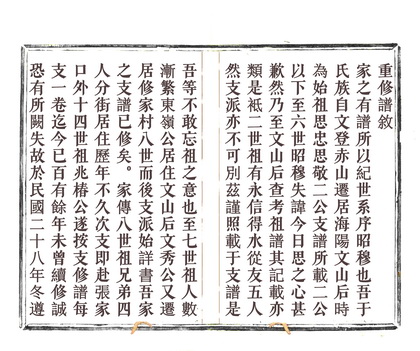 重修譜敘
家之有譜所以紀世系序昭穆也吾于
氏族自文登赤山遷居海陽文山后時
為始祖思忠思敬二公支譜所載二公
以下至六世昭穆失諱今日思之心甚
歉然乃至文山后查考祖譜其記載亦
類是祗二世祖有永信得水從友五人
然支派亦不可別茲謹照載于支譜是
吾等不敢忘祖之意也至七世祖人數
漸繁東嶺公居住文山后文秀公又遷
居修家村八世而後支派始詳書吾家
之支譜已修矣。家傳八世祖兄弟四
人分街居住歷年不久次支即赴張家
口外十四世祖兆椿公遂按支修譜每
支一卷迄今已百有餘年未曾續修誠
恐有所闕失故於民國二十八年冬遵